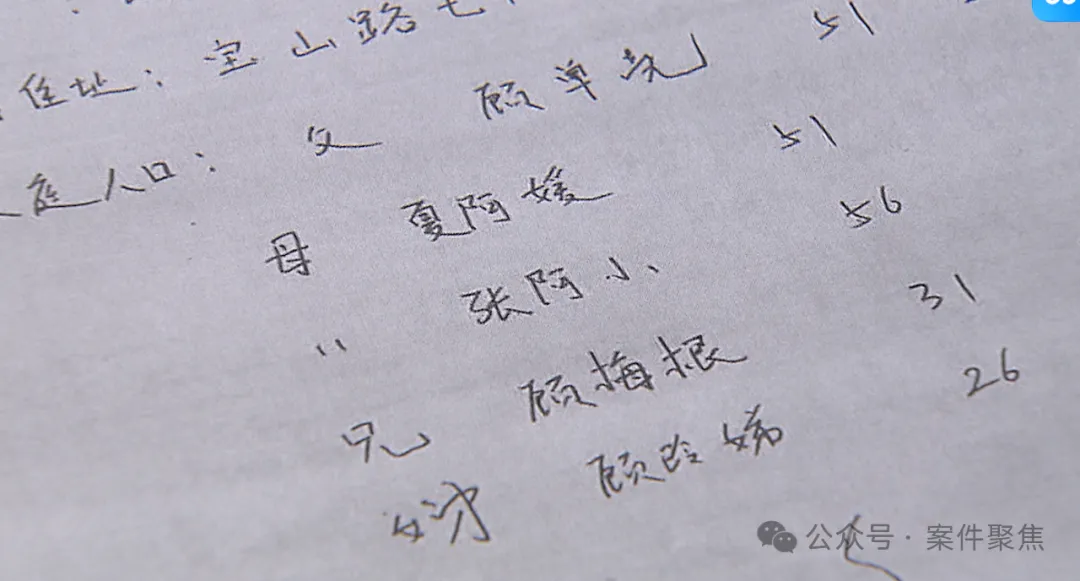 住址：宝山路七
庭人口：父 顾单先 51
母 夏阿媛 51
〃 张阿小 56
兄 顾梅根 31
嫂 顾玲娣 26
公众号·案件聚焦